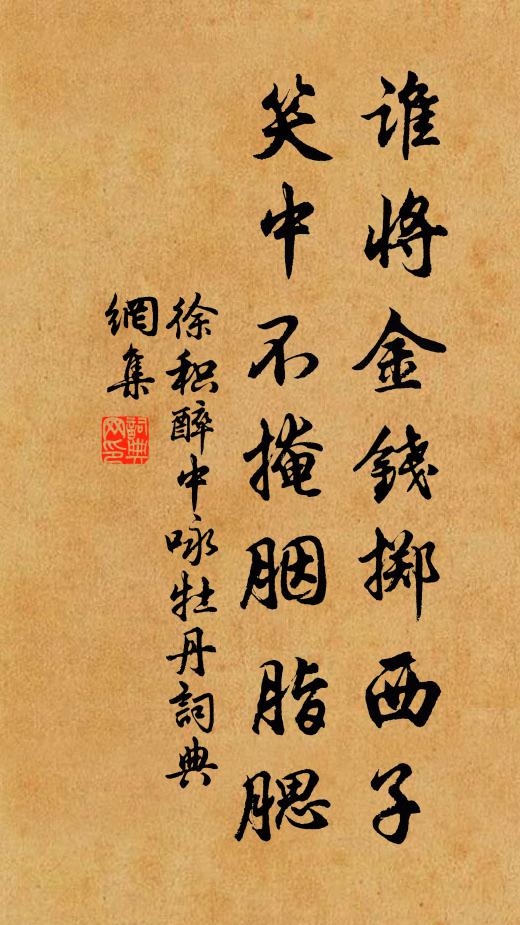 谁将金錢掷西子
笑中不掩胭脂腮
徐积醉中咏牡丹詞典
網集
詞典網印